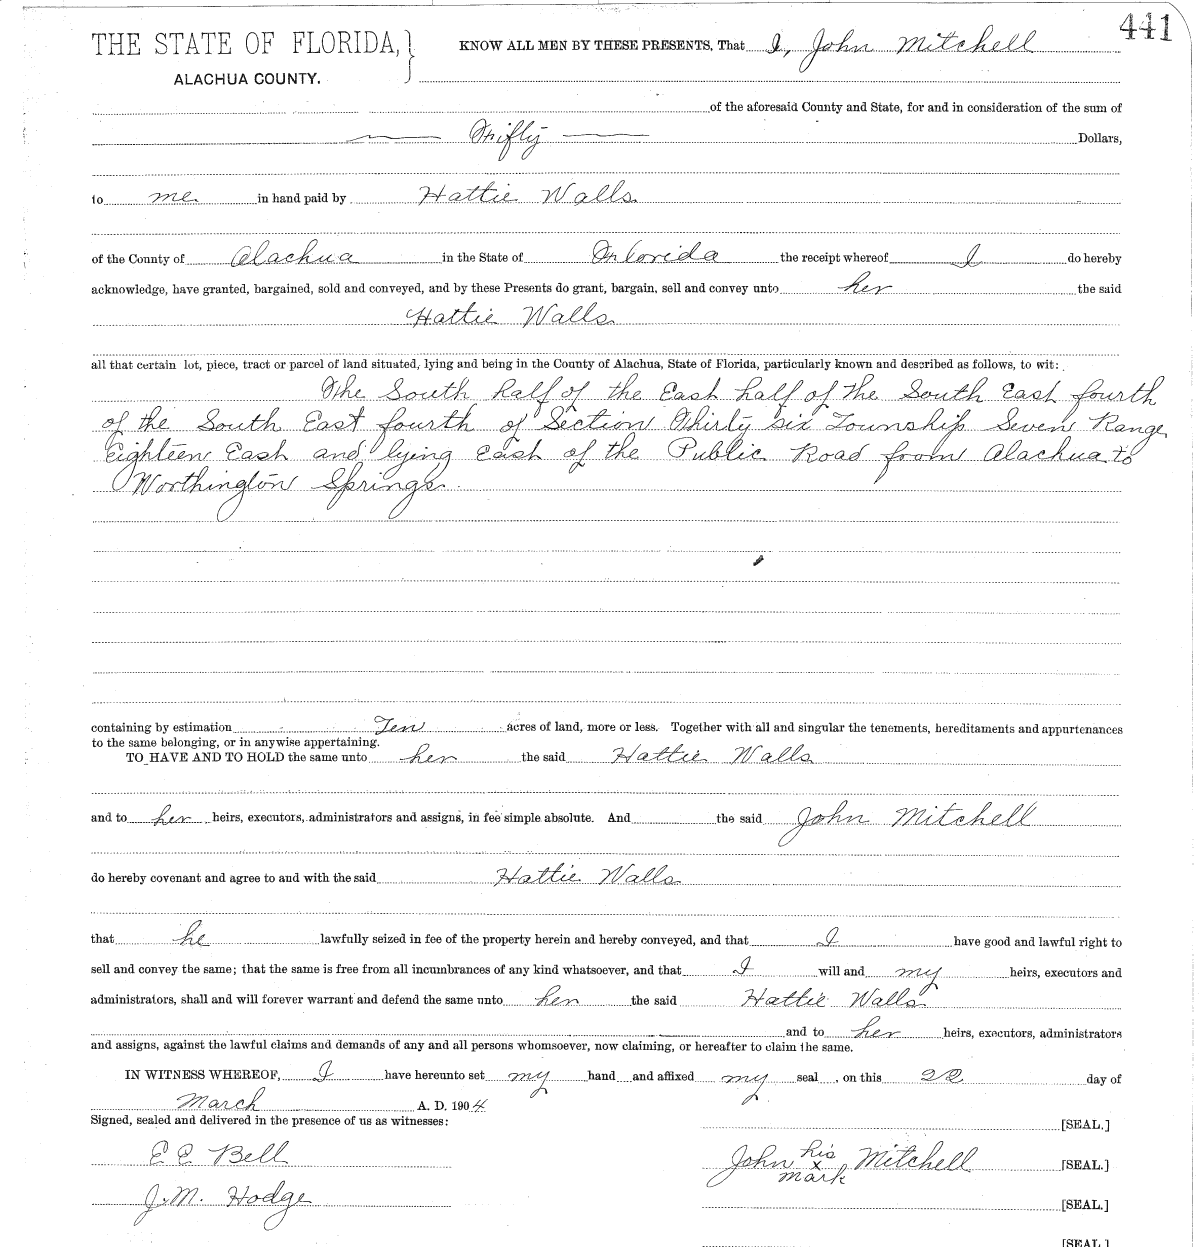 441
THE STATE OF FLORIDA,
ALACHUA COUNTY.
KNOW ALL MEN BY THESE PRESENTS, That I, John Mitchell
of the aforesaid County and State, for and in consideration of the sum of
Fifty Dollars,
to me in hand paid by Hattie Walls
of the County of Alachua in the State of Florida the receipt whereof I do hereby
acknowledge, have granted, bargained, sold and conveyed, and by these Presents do grant, bargain, sell and convey unto her the said
Hattie Walls
all that certain lot, piece, tract or parcel of land situated, lying and being in the County of Alachua, State of Florida, particularly known and described as follows, to wit:
The South half of the East half of the South East fourth
of the South East fourth of Section Thirty six Township Seven Range
Eighteen East and lying East of the Public Road from Alachua to
Worthington Springs.
containing by estimation Ten acres of land, more or less. Together with all and singular the tenements, hereditaments and appurtenances
to the same belonging, or in anywise appertaining.
TO HAVE AND TO HOLD the same unto her the said Hattie Walls
and to her heirs, executors, administrators and assigns, in fee simple absolute. And the said John Mitchell
do hereby covenant and agree to and with the said Hattie Walls
that he lawfully seized in fee of the property herein and hereby conveyed, and that I have good and lawful right to
sell and convey the same; that the same is free from all incumbrances of any kind whatsoever, and that I will and my heirs, executors and
administrators, shall and will forever warrant and defend the same unto her the said Hattie Walls
and to her heirs, executors, administrators
and assigns, against the lawful claims and demands of any and all persons whomsoever, now claiming, or hereafter to claim the same.
IN WITNESS WHEREOF, I have hereunto set my hand and affixed my seal, on this 22 day of
March A. D. 1904
Signed, sealed and delivered in the presence of us as witnesses:
[SEAL.]
E E Bell
John his x mark Mitchell [SEAL.]
J. M. Hodge
[SEAL.]
[SEAL.]